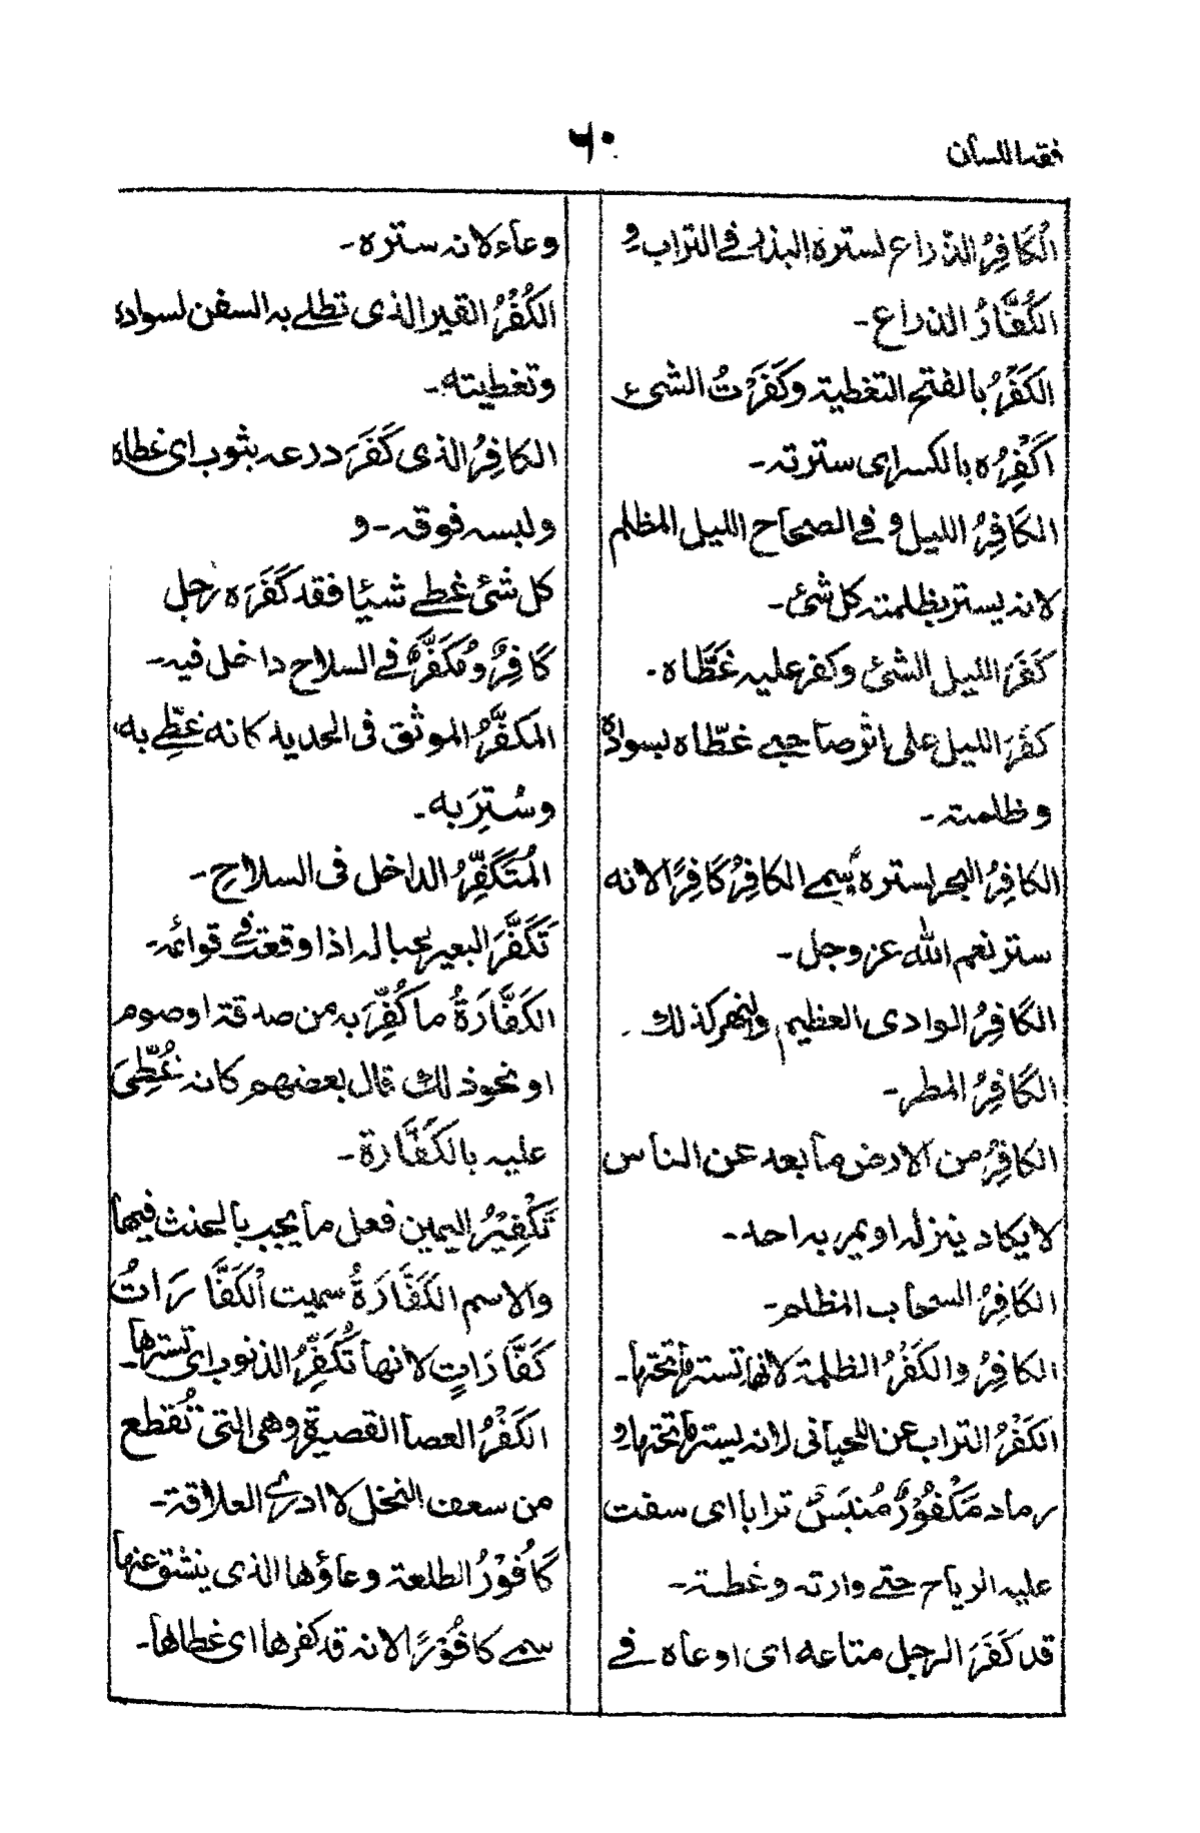 فقه اللسان
٦٠
الْكَافِرُ الذراع لستره البذر فے التراب و
الكُفَّارُ الذراع۔
الكَفْرُ بالفتح التغطية وكَفَرْتُ الشیء
اَكْفِرُه بالكسر ای سترته۔
الكَافِرُ الليل و فے الصحاح الليل المظلم
لانه يستر بظلمته كل شئ۔
كَفَرَ الليل الشئ وكفر عليه غَطَّاه۔
كَفَرَ الليل على اثر صاحبے غطّاه بسواده
وظلمته۔
الكافِرُ البحر لستره يسمے الكافِرُ كَافِرًا لانه
ستر نعم الله عزوجل۔
الكَافِرُ الوادی العظيم والنهر كذلك۔
الكَافِرُ المطر۔
الكافِرُ من الارض ما بعد عن الناس
لا يكاد ينزله او يمر به احد۔
الكَافِرُ السحاب المظلم۔
الكافِرُ والكَفْرُ الظلمة لانها تستر ما تحتها۔
الكَفْرُ التراب عن اللحيانی لانه يستر ما تحتها و
رماد مَكْفُوْرٌ مُنبَسٌ ترابا ای سفت
عليه الرياح حتے وارته وغطته۔
قد كَفَرَ الرجل متاعه ای اوعاه فے
وعاء لانه ستره۔
الكُفْرُ القير الذی تطلے به السفن لسواده
وتغطيته۔
الكافِرُ الذی كَفَرَ درعه بثوب ای غطاه
ولبسه فوقه۔ و
كل شئ غطے شيئا فقد كَفَرَه رجل
كَافِرٌ ومُكَفَّرٌ فے السلاح داخل فيه۔
المكفَّرُ الموثق فی الحديد كانه غطّے به
وسُتِرَ به۔
المُتَكَفِّرُ الداخل فی السلاح۔
تَكَفَّرَ البعير بحباله اذا وقعت فے قوائمه۔
الكَفَّارَةُ ما كُفِّرَ به من صدقة او صوم
او نحو ذلك قال بعضهم كانه غُطِّیَ
عليه بالكَفَّارة۔
تَكْفِيْرُ اليمين فعل ما يجب بالحنث فيها
والاسم الكَفَّارَةُ سميت الْكَفَّارَاتُ
كَفَّارَاتٍ لانها تُكَفِّرُ الذنوب ای تسترها۔
الكَفْرُ العصا القصيرة وهی التی تُقطع
من سعف النخل لا ادرے العلاقة۔
كَافُوْرُ الطلعة وعاؤها الذی ينشق عنها
سمے كافُوْرًا لانه قد كفرها ای غطاها۔